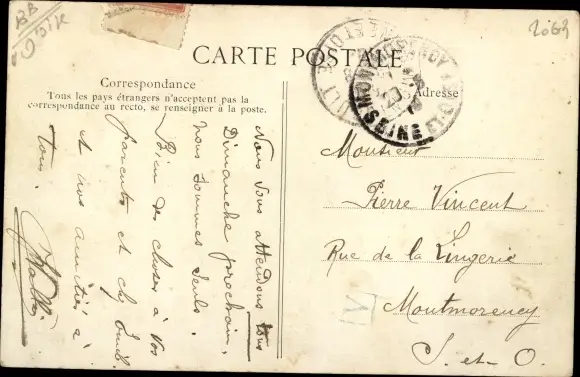 BB
2063
CARTE POSTALE
Correspondance
Tous les pays étrangers n'acceptent pas la
correspondance au recto, se renseigner à la poste.
Adresse
MONTMORENCY
SEINE
Nous vous attendons tous
Dimanche prochain,
nous sommes seuls.
Bien des choses à vos
parents et chz Emile
et nos amitiés à
tous.
Monsieur
Pierre Vincent
Rue de la Lingerie
Montmorency
S. et O.